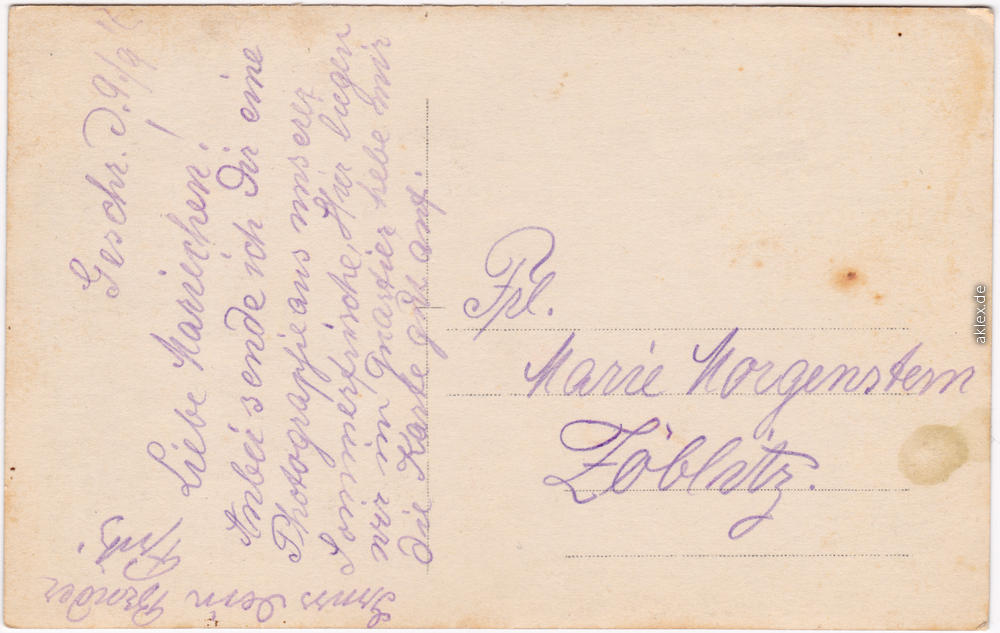 Geschr. d. 9./9.
Liebe Mariechen!
Anbei sende ich Dir eine
Photografie aus unserer
Sommerfrische, Hier liegen
wir im Quartier hebe mir
die Karte gut auf.
Gruss Dein Bruder
Fritz.
Frl.
Marie Morgenstern
Zöblitz.
aklex.de